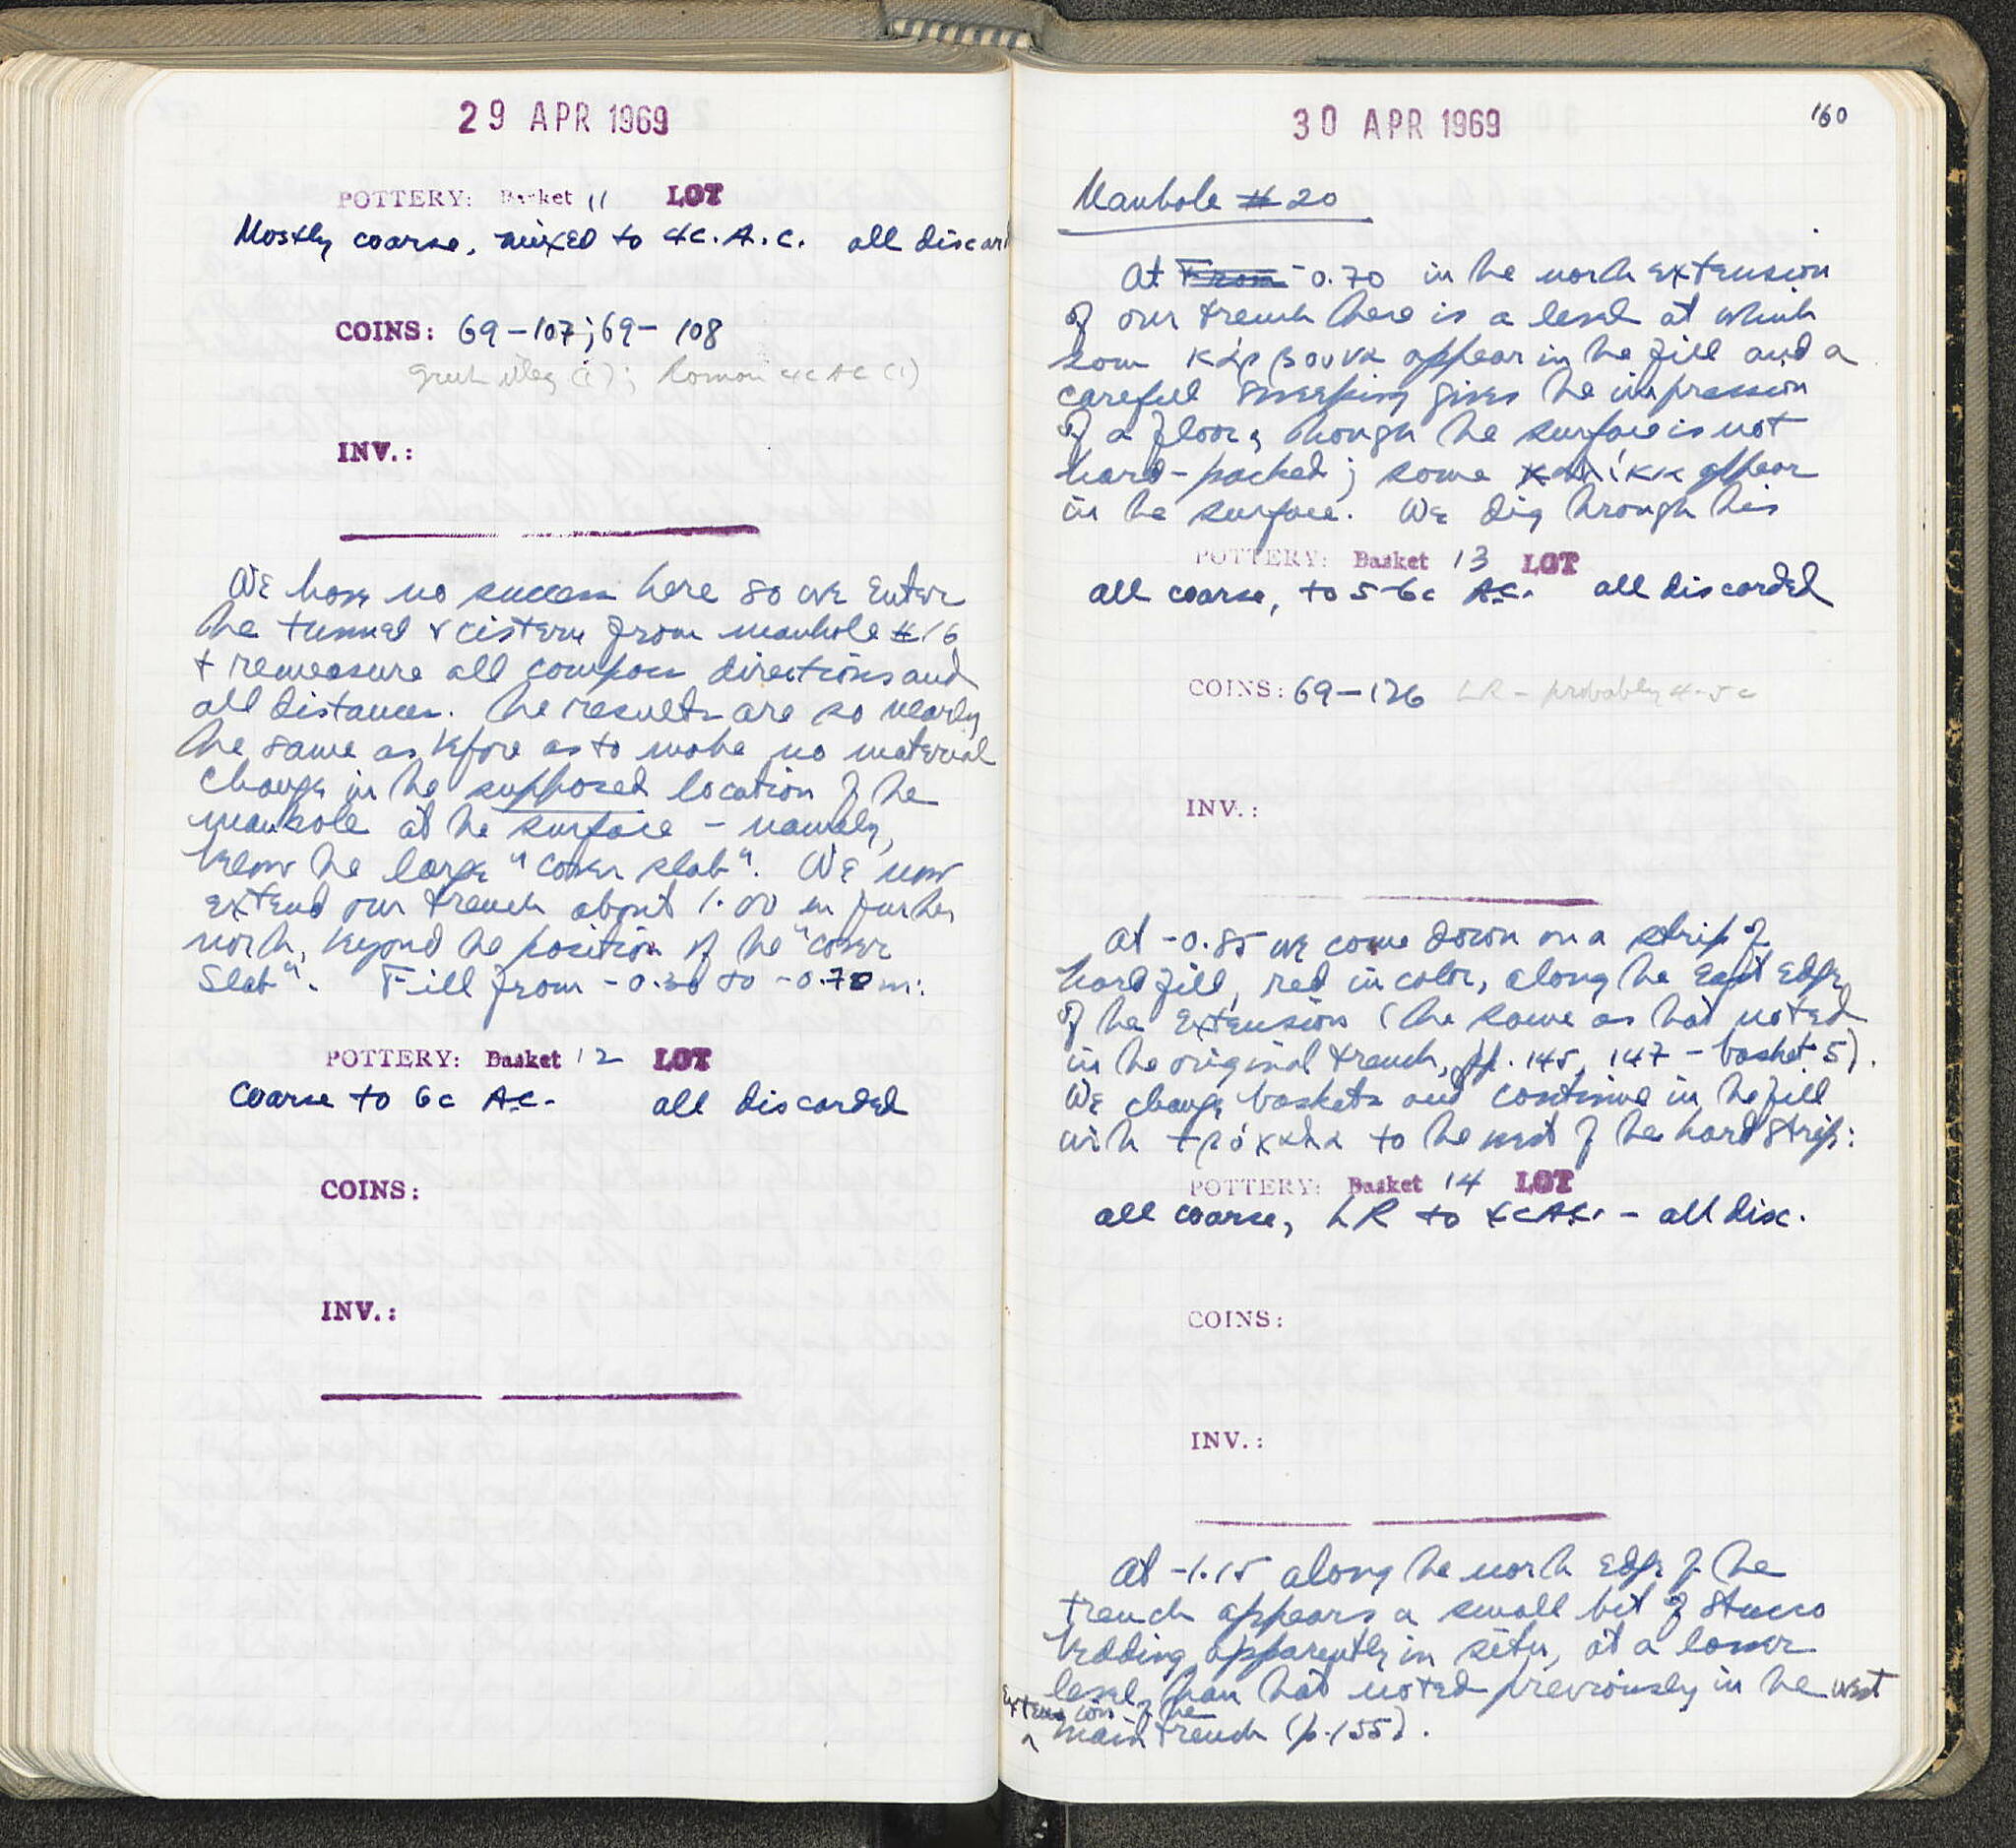 29 APR 1969
POTTERY: Basket 11 LOT
Mostly coarse, mixed to 4c. A.C. all discard
COINS: 69-107; 69-108
Greek illeg (1); Roman 4c AC (1)
INV.:
We have no success here so we enter
the tunnel & cistern from manhole #16
+ remeasure all compass directions and
all distances. The results are so nearly
the same as before as to make no material
change in the supposed location of the
manhole at the surface - namely,
below the large "cover slab". We now
extend our trench about 1.00 m further
north, beyond the position of the "cover
slab". Fill from -0.30 to -0.70 m:
POTTERY: Basket 12 LOT
Coarse to 6c A.C. all discarded
COINS:
INV.:
30 APR 1969
160
Manhole #20
At From -0.70 in the north extension
of our trench there is a level at which
some κάρβουνα appear in the fill and a
careful sweeping gives the impression
of a floor, though the surface is not
hard-packed; some χαλίκια appear
in the surface. We dig through this
POTTERY: Basket 13 LOT
all coarse, to 5-6c A.C. all discarded
COINS: 69-126 LR - probably 4-5c
INV.:
At -0.85 we come down on a strip of
hard fill, red in color, along the East Edge
of the Extension (the same as that noted
in the original trench, pp. 145, 147 - basket 5).
We change baskets and continue in the fill
with τρόχαλα to the west of the hard strip:
POTTERY: Basket 14 LOT
all coarse, LR to A.C. - all disc.
COINS:
INV.:
At -1.15 along the north Edge of the
trench appears a small bit of stucco
bedding apparently in situ, at a lower
level than that noted previously in the west
extension of the
main trench (p. 155).